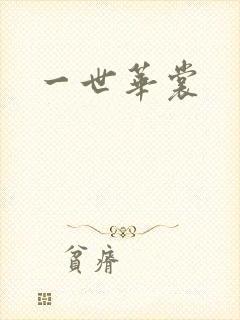 一世華裳
貧瘠